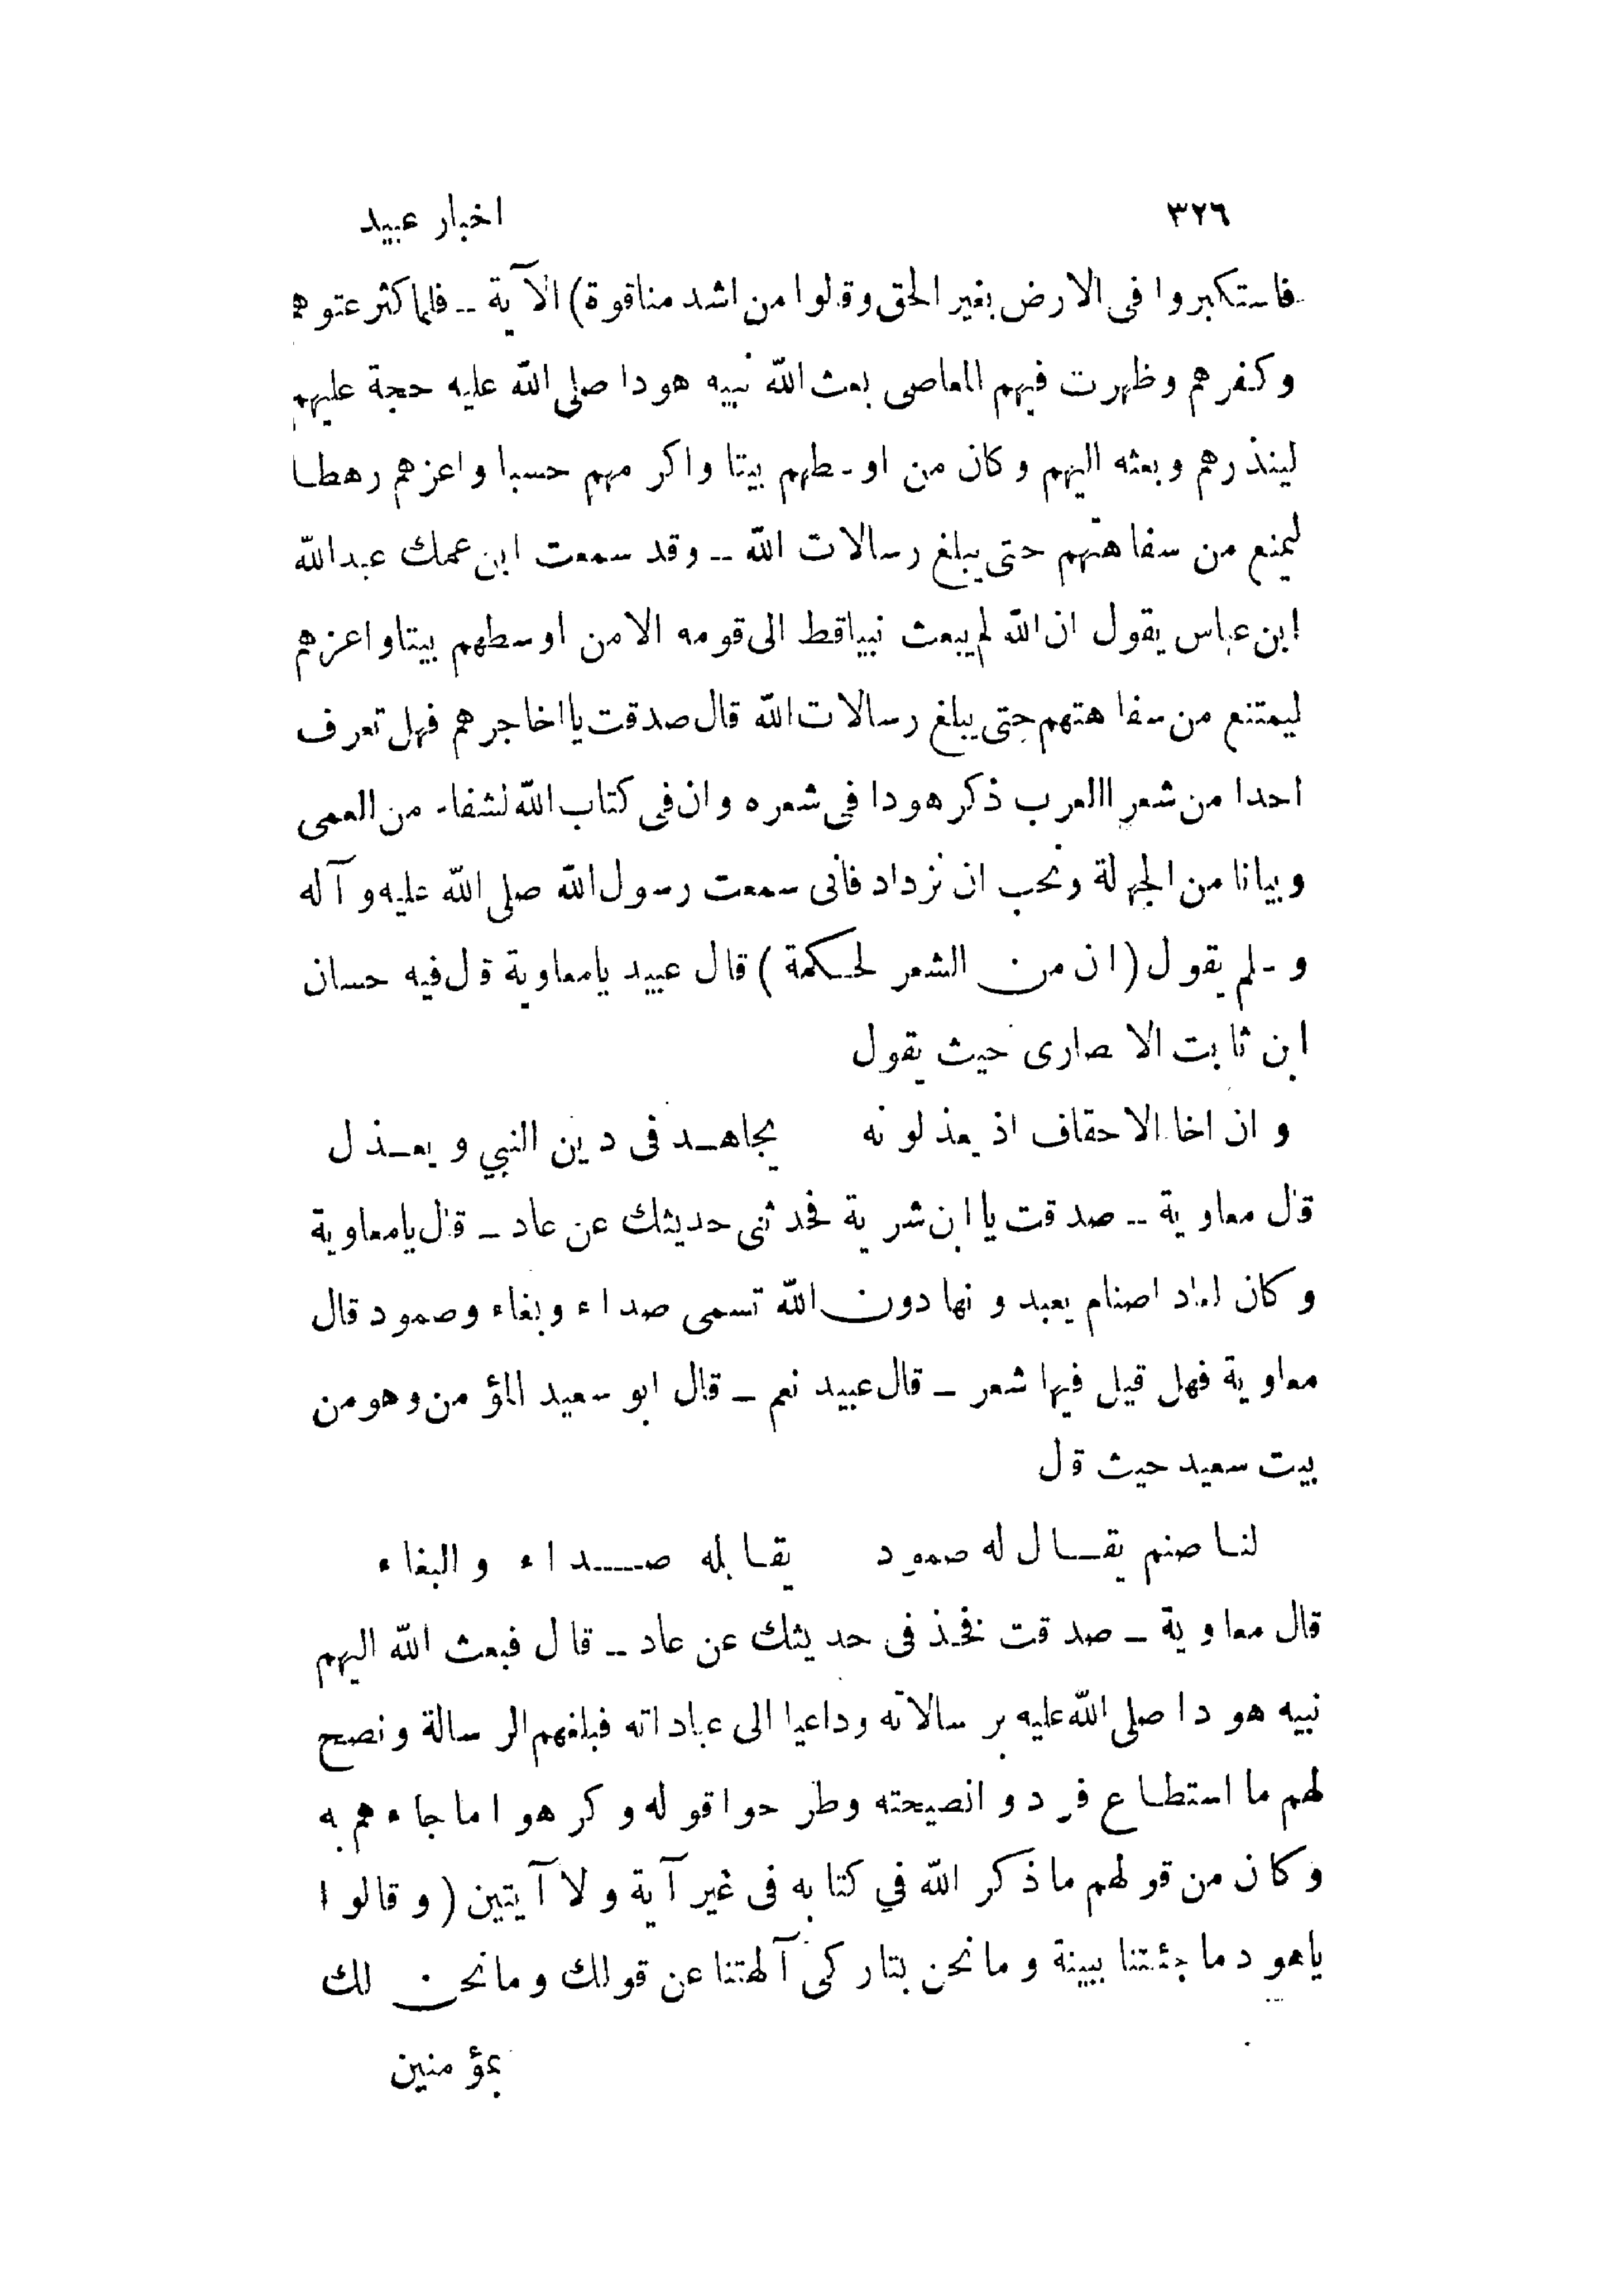 ٣٢٦ اخبار عبيد
فاستكبروا فى الارض بغير الحق وقالوا من اشد منا قوة) الآية ــ فلما كثر عتوهم
وكفرهم وظهرت فيهم المعاصى بعث الله نبيه هودا صلى الله عليه حجة عليهم
لينذرهم وبعثه اليهم وكان من اوسطهم بيتا واكرمهم حسبا واعزهم رهطا
ليمنع من سفاهتهم حتى يبلغ رسالات الله ــ وقد سمعت ابن عمك عبدالله
ابن عباس يقول ان الله لم يبعث نبيا قط الى قومه الا من اوسطهم بيتا واعزهم
ليمتنع من سفاهتهم حتى يبلغ رسالات الله قال صدقت يا اخا جرهم فهل تعرف
احدا من شعر االعرب ذكر هودا فى شعره وان فى كتاب الله لشفاء من العمى
وبيانا من الجهلة ونحب ان نزداد فانى سمعت رسول الله صلى الله عليه وآله
وسلم يقول (ان من الشعر لحكمة) قال عبيد يا معاوية قال فيه حسان
ابن ثابت الانصارى حيث يقول
وان اخا الاحقاف اذ يعذلونه يجاهد فى دين النبي ويعذل
قال معاوية ــ صدقت يا ابن شرية فحدثنى حديثك عن عاد ــ قال يا معاوية
وكان لعاد اصنام يعبدونها دون الله تسمى صداء وبغاء وصمود قال
معاوية فهل قيل فيها شعر ــ قال عبيد نعم ــ قال ابو سعيد المؤمن وهو من
بيت سعيد حيث قال
لنا صنم يقال له صمود يقابله صداء والبغاء
قال معاوية ــ صدقت فخذ فى حديثك عن عاد ــ قال فبعث الله اليهم
نبيه هودا صلى الله عليه برسالاته وداعيا الى عباداته فبلغهم الرسالة ونصح
لهم ما استطاع فردوا نصيحته وطرحوا قوله وكرهوا ما جاءهم به
وكان من قولهم ما ذكر الله في كتابه فى غير آية ولا آيتين (وقالوا
ياهود ما جئتنا ببينة وما نحن بتاركى آلهتنا عن قولك وما نحن لك
بمؤمنين